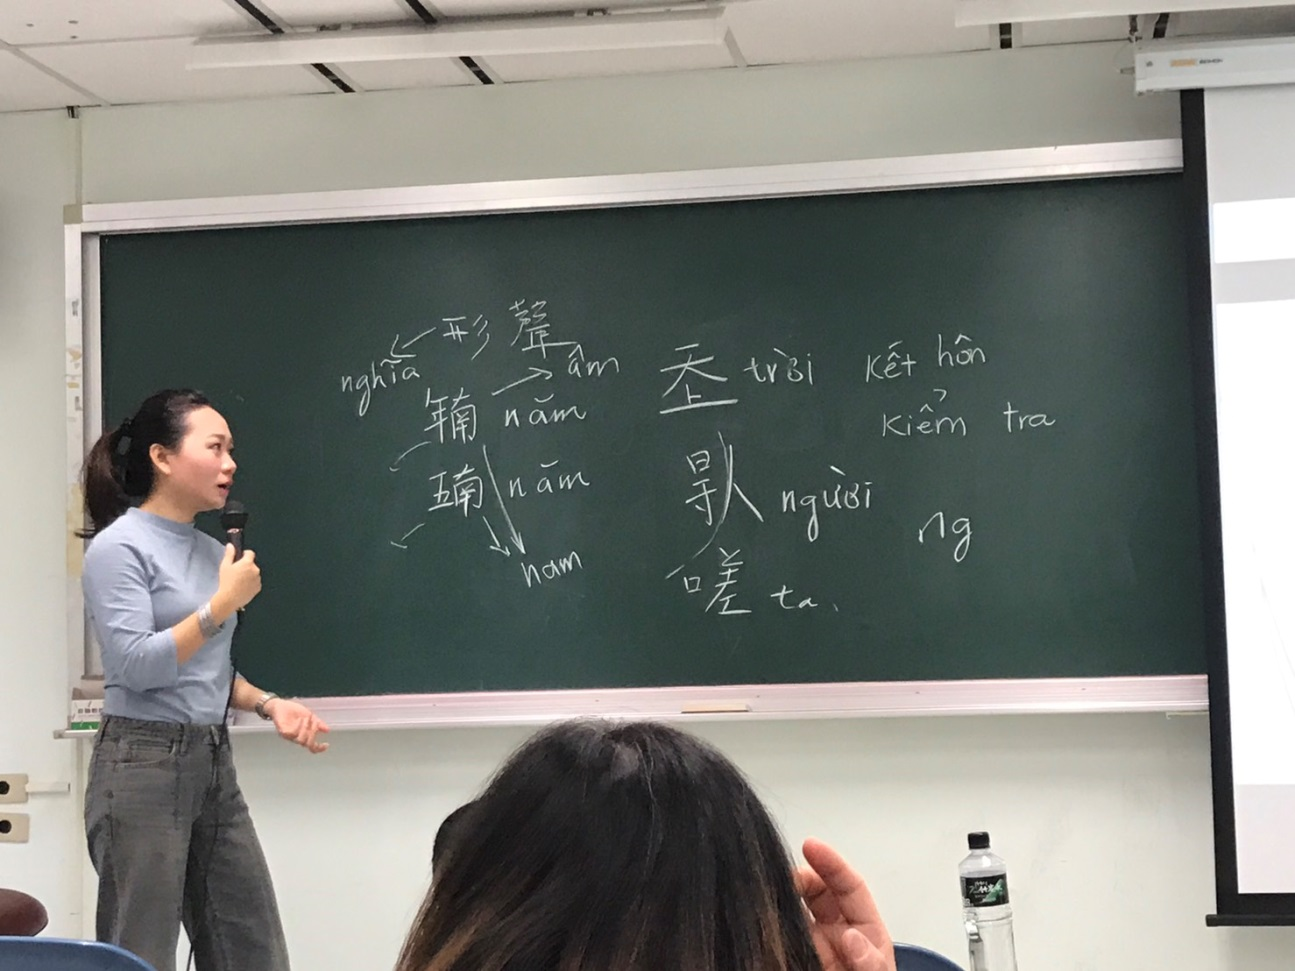 形聲
nghĩa
âm
𢆥 năm
𠄼 năm
nam
𡗶 trời
𠊛 người
嗟 ta.
kết hôn
kiểm tra
ng